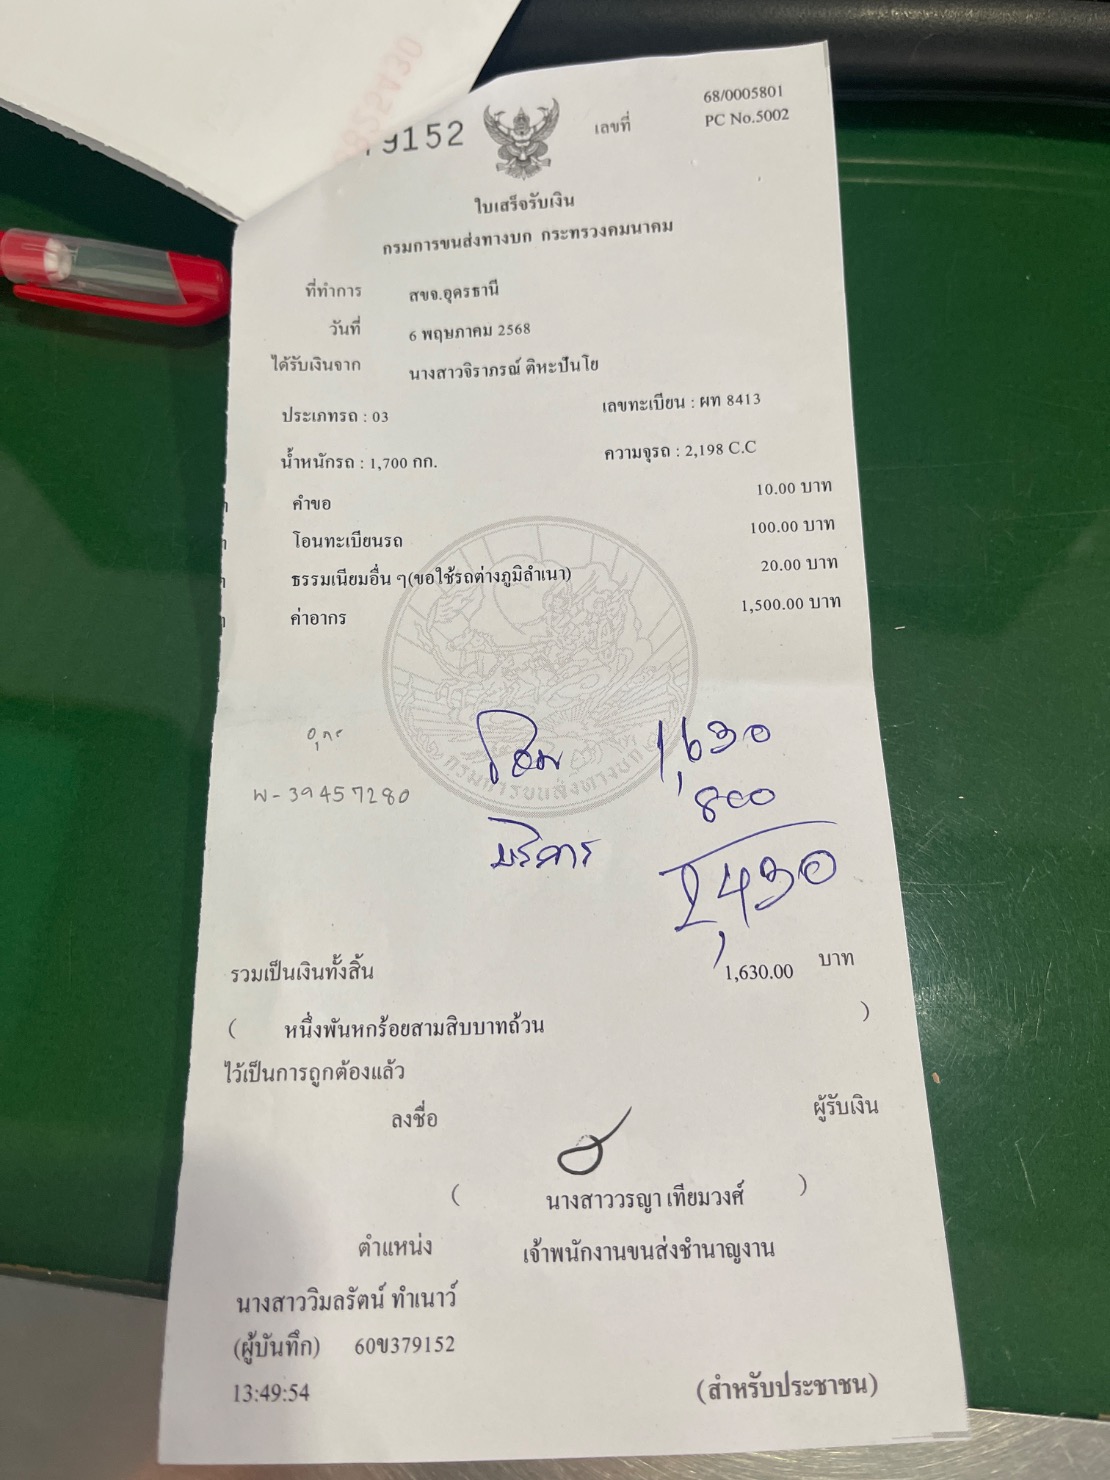 855430
79152
เลขที่ 68/0005801
PC No.5002
ใบเสร็จรับเงิน
กรมการขนส่งทางบก กระทรวงคมนาคม
ที่ทำการ สขจ.อุดรธานี
วันที่ 6 พฤษภาคม 2568
ได้รับเงินจาก นางสาวจิราภรณ์ ติหะปันโย
ประเภทรถ : 03 เลขทะเบียน : ผท 8413
น้ำหนักรถ : 1,700 กก. ความจุรถ : 2,198 C.C
คำขอ 10.00 บาท
โอนทะเบียนรถ 100.00 บาท
ธรรมเนียมอื่น ๆ(ขอใช้รถต่างภูมิลำเนา) 20.00 บาท
ค่าอากร 1,500.00 บาท
โอน 1,630
W-39457280 800
บริการ
2,430
กรมการขนส่งทางบก
รวมเป็นเงินทั้งสิ้น 1,630.00 บาท
( หนึ่งพันหกร้อยสามสิบบาทถ้วน )
ไว้เป็นการถูกต้องแล้ว
ลงชื่อ ผู้รับเงิน
( นางสาววรญา เทียมวงศ์ )
ตำแหน่ง เจ้าพนักงานขนส่งชำนาญงาน
นางสาววิมลรัตน์ ทำเนาว์
(ผู้บันทึก) 60ข379152
13:49:54 (สำหรับประชาชน)